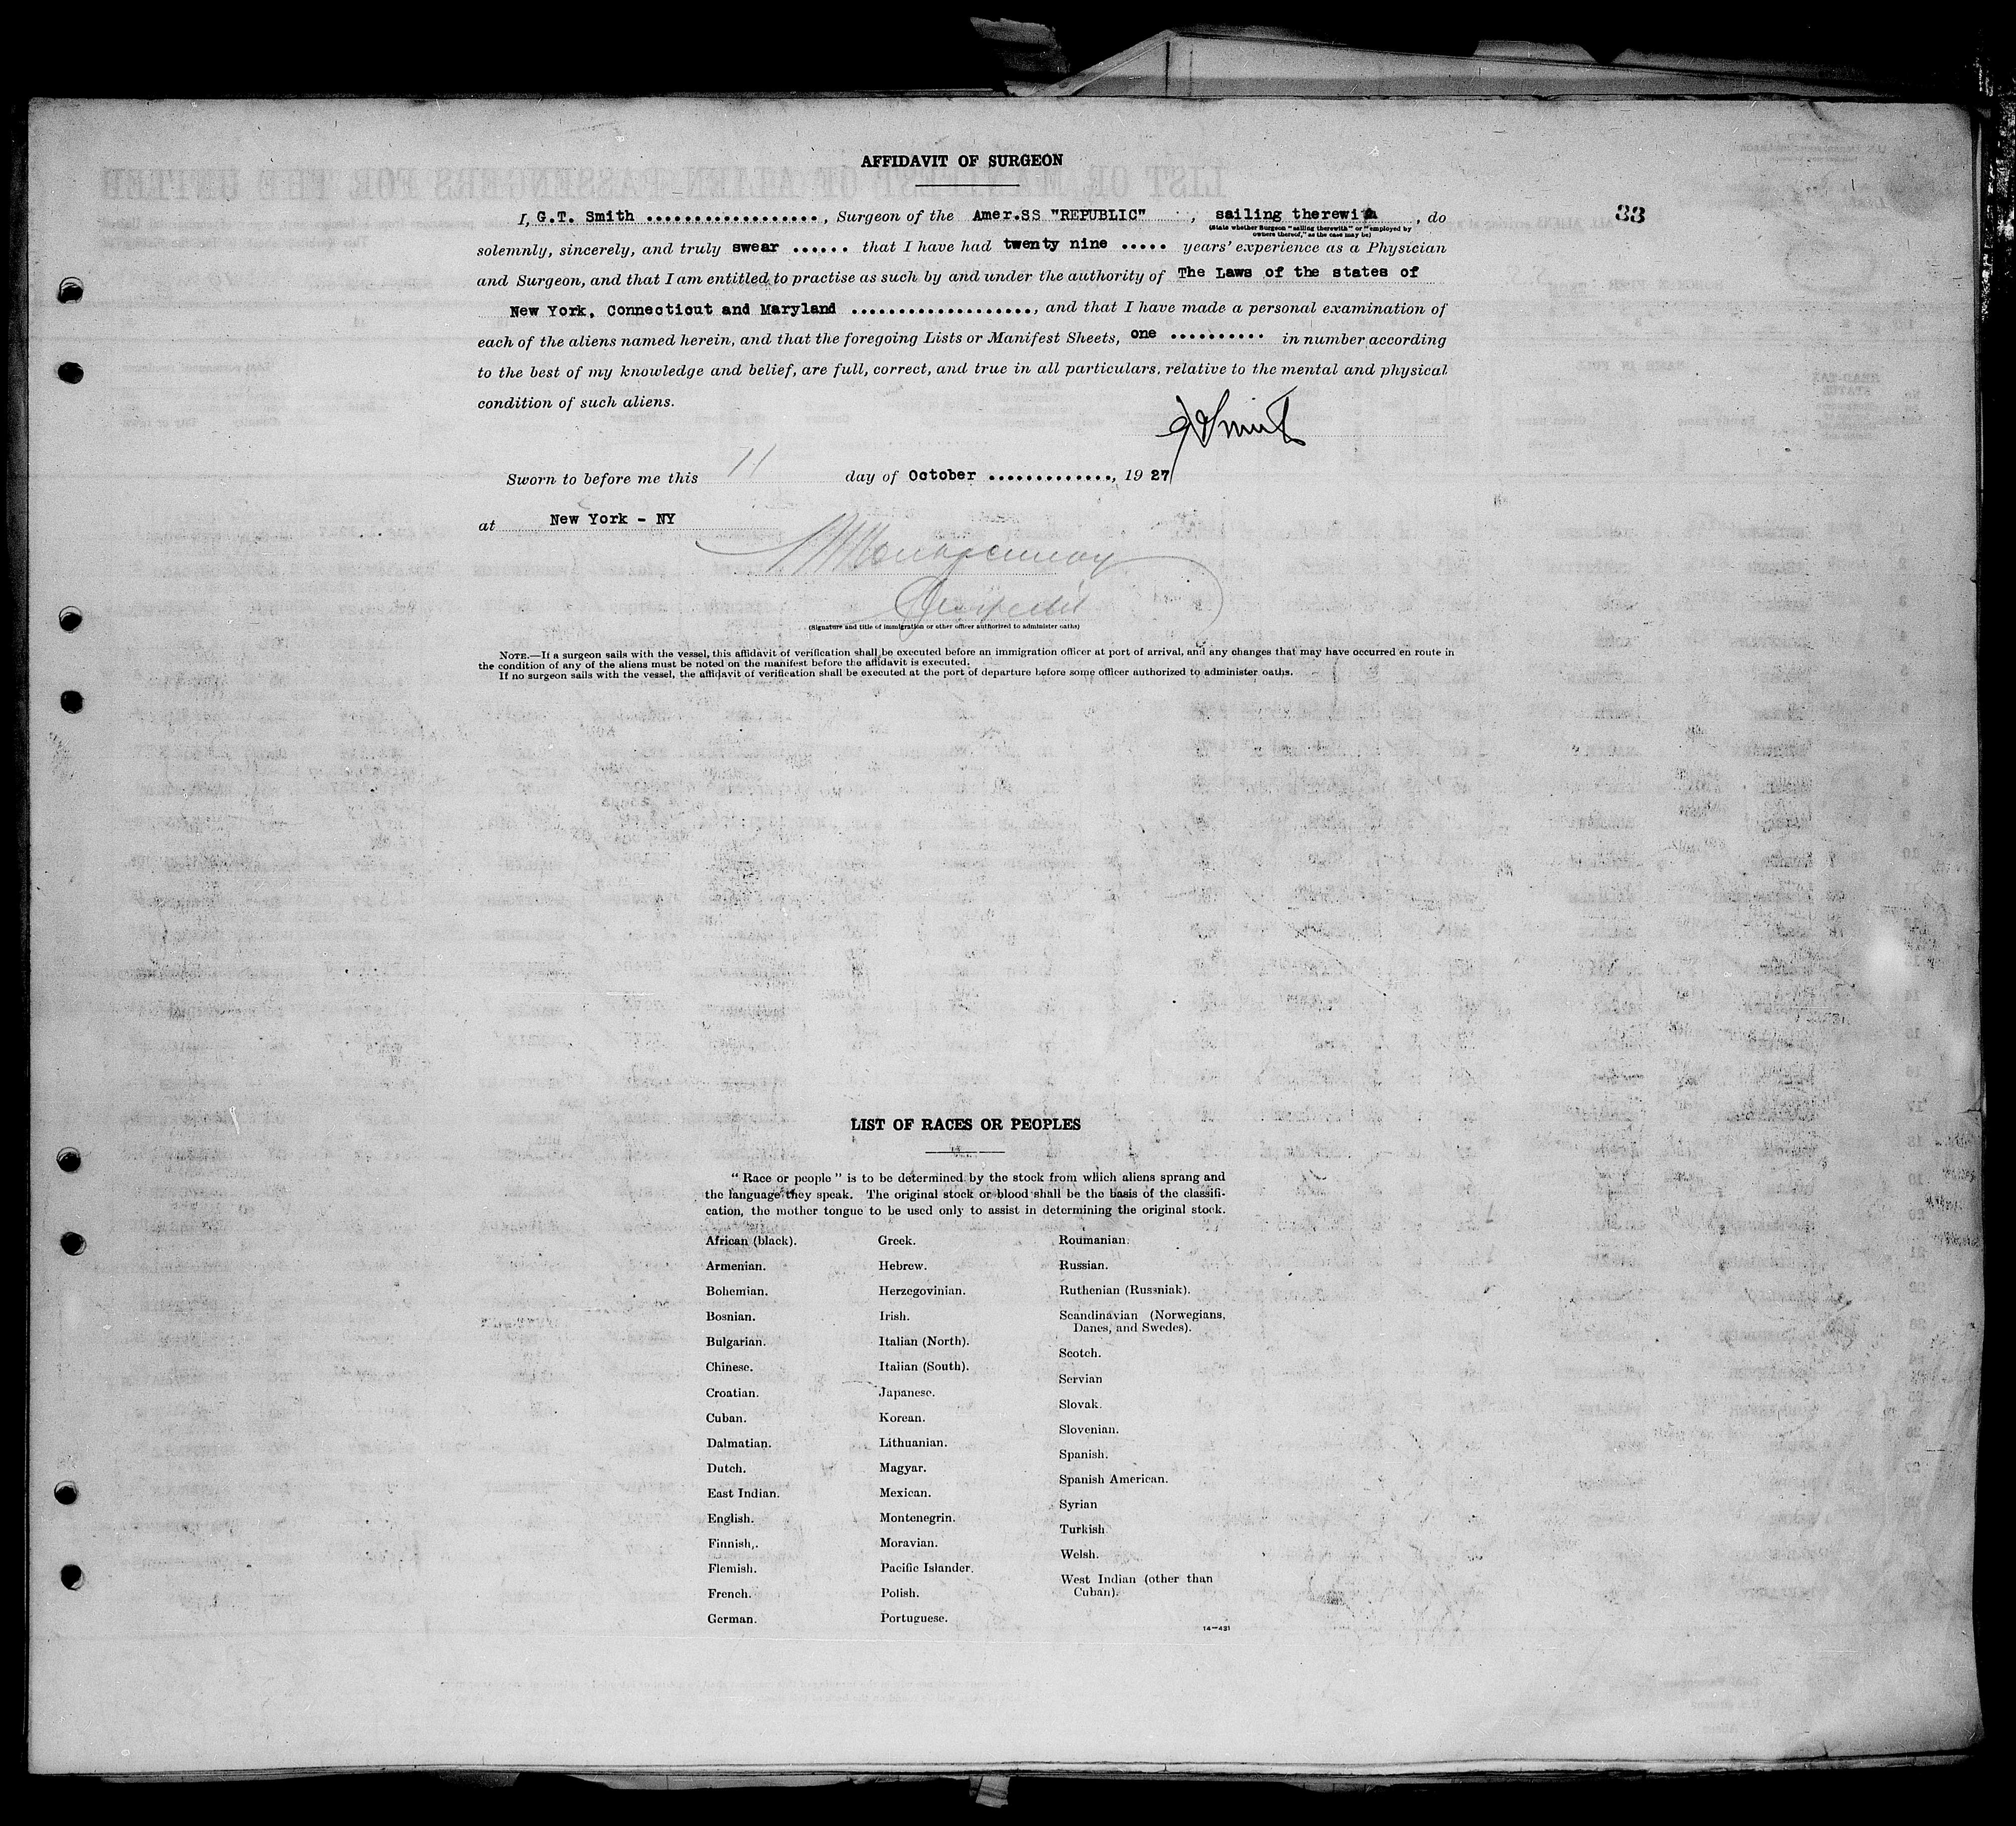 AFFIDAVIT OF SURGEON
33
I, G.T. Smith .................., Surgeon of the Amer.SS "REPUBLIC" , sailing therewith , do
(State whether Surgeon "sailing therewith" or "employed by
owners thereof," as the case may be)
solemnly, sincerely, and truly swear ...... that I have had twenty nine ..... years' experience as a Physician
and Surgeon, and that I am entitled to practise as such by and under the authority of The Laws of the states of
New York, Connecticut and Maryland ..................., and that I have made a personal examination of
each of the aliens named herein, and that the foregoing Lists or Manifest Sheets, one .......... in number according
to the best of my knowledge and belief, are full, correct, and true in all particulars, relative to the mental and physical
condition of such aliens.
Smith
Sworn to before me this 11 day of October ............., 19 27
at New York - NY
(Signature and title of immigration or other officer authorized to administer oaths)
NOTE.—If a surgeon sails with the vessel, this affidavit of verification shall be executed before an immigration officer at port of arrival, and any changes that may have occurred en route in
the condition of any of the aliens must be noted on the manifest before the affidavit is executed.
If no surgeon sails with the vessel, the affidavit of verification shall be executed at the port of departure before some officer authorized to administer oaths.
LIST OF RACES OR PEOPLES
"Race or people" is to be determined by the stock from which aliens sprang and
the language they speak. The original stock or blood shall be the basis of the classifi-
cation, the mother tongue to be used only to assist in determining the original stock.
African (black).
Armenian.
Bohemian.
Bosnian.
Bulgarian.
Chinese.
Croatian.
Cuban.
Dalmatian.
Dutch.
East Indian.
English.
Finnish.
Flemish.
French.
German.
Greek.
Hebrew.
Herzegovinian.
Irish.
Italian (North).
Italian (South).
Japanese.
Korean.
Lithuanian.
Magyar.
Mexican.
Montenegrin.
Moravian.
Pacific Islander.
Polish.
Portuguese.
Roumanian.
Russian.
Ruthenian (Russniak).
Scandinavian (Norwegians,
Danes, and Swedes).
Scotch.
Servian
Slovak.
Slovenian.
Spanish.
Spanish American.
Syrian
Turkish
Welsh.
West Indian (other than
Cuban).
14—431